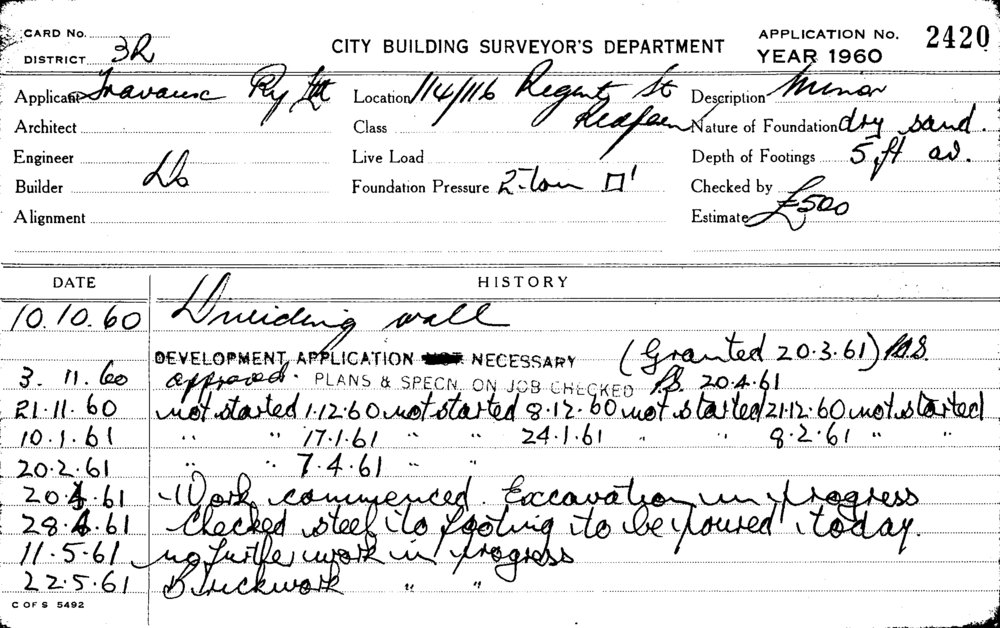 CARD No. CITY BUILDING SURVEYOR'S DEPARTMENT APPLICATION No. 2420
DISTRICT 3R YEAR 1960
Applicant Pty Ltd Location 114/116 Regent St Description Minor
Architect Class Redfern Nature of Foundation dry sand.
Engineer Live Load Depth of Footings 5 ft av.
Builder Do Foundation Pressure 2 ton □' Checked by
Alignment Estimate £500
DATE HISTORY
10.10.60 Dividing wall
DEVELOPMENT APPLICATION NECESSARY (Granted 20.3.61)
3.11.60 approved. PLANS & SPECN. ON JOB CHECKED 20.4.61
21.11.60 not started 1.12.60 not started 8.12.60 not started 21.12.60 not started
10.1.61 " " 17.1.61 " " 24.1.61 " " 8.2.61 " "
20.2.61 " " 7.4.61 " "
20.4.61 Work commenced. Excavation in progress
28.4.61 Checked steel to footing to be poured today.
11.5.61 no further work in progress
22.5.61 Brickwork " "
C OF S 5492